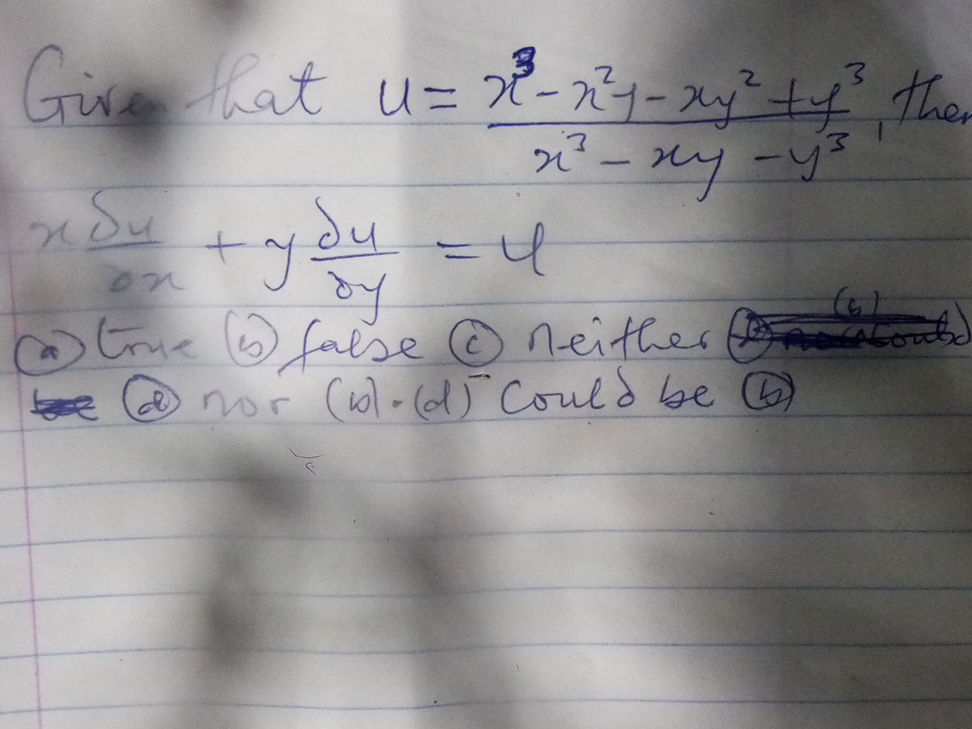 Given that u = x³ - x²y - xy² + y³ / x³ - xy - y³, then
x ∂u/∂x + y ∂u/∂y = 4
(a) true (b) false (c) neither
(a) nor (b). (d) Could be (b)